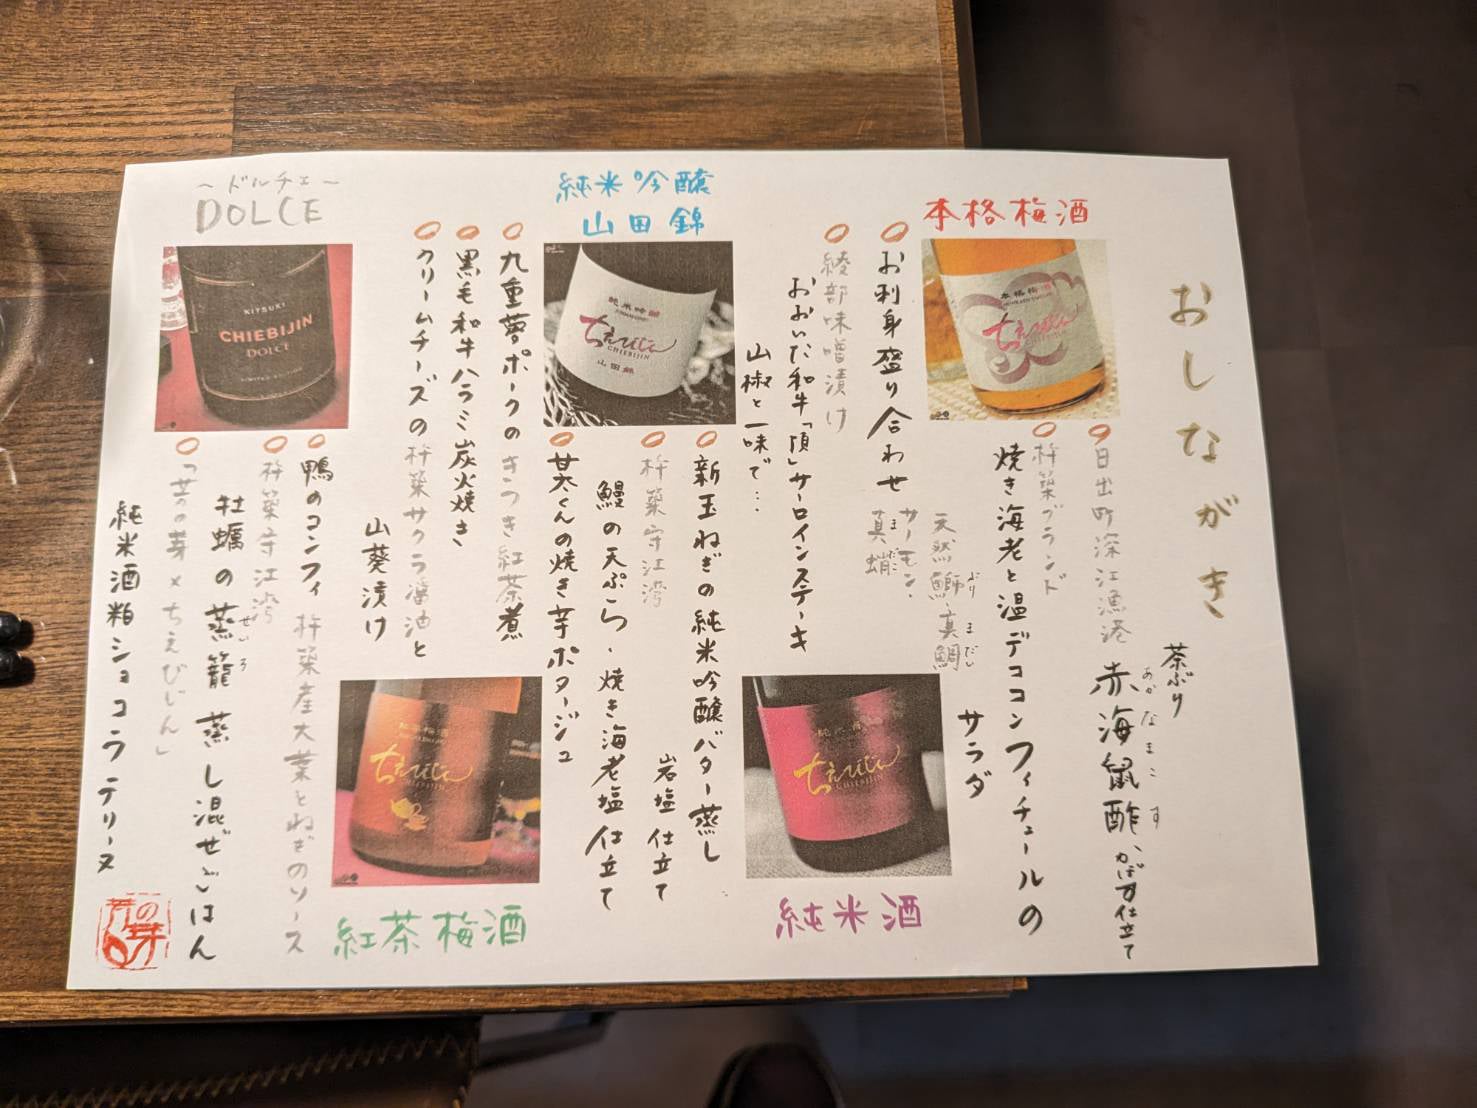 おしながき
本格梅酒
日出町深江漁港
茶ぶり
赤海鼠酢
あかなまこす
かぼす仕立て
杵築ブランド
焼き海老と温デココンフィチュールの
サラダ
お利身盛り合わせ
天然鰤・真鯛
ぶり
まだい
サーモン・
真蛸
まだこ
綾部味噌漬け
おおいた和牛「頂」サーロインステーキ
山椒と一味で…
純米酒
純米吟醸
山田錦
新玉ねぎの純米吟醸バター蒸し
岩塩仕立て
杵築守江湾
鰻の天ぷら・焼き海老塩仕立て
甘太くんの焼き芋ポタージュ
九重夢ポークのきつき紅茶煮
黒毛和牛ハラミ炭火焼き
クリームチーズの杵築サクラ醤油と
山葵漬け
紅茶梅酒
～ドルチェ～
DOLCE
KITSUKI
CHIEBIJIN
DOLCE
鴨のコンフィ 杵築産大葉とねぎのソース
杵築守江湾
牡蠣の蒸籠蒸し混ぜごはん
せいろ
「芳の芽×ちえびじん」
純米酒粕ショコラテリーヌ
本格梅酒
ちえびじん
純米吟醸
ちえびじん
CHIEBIJIN
山田錦
ちえびじん
CHIEBIJIN
紅茶梅酒
ちえびじん